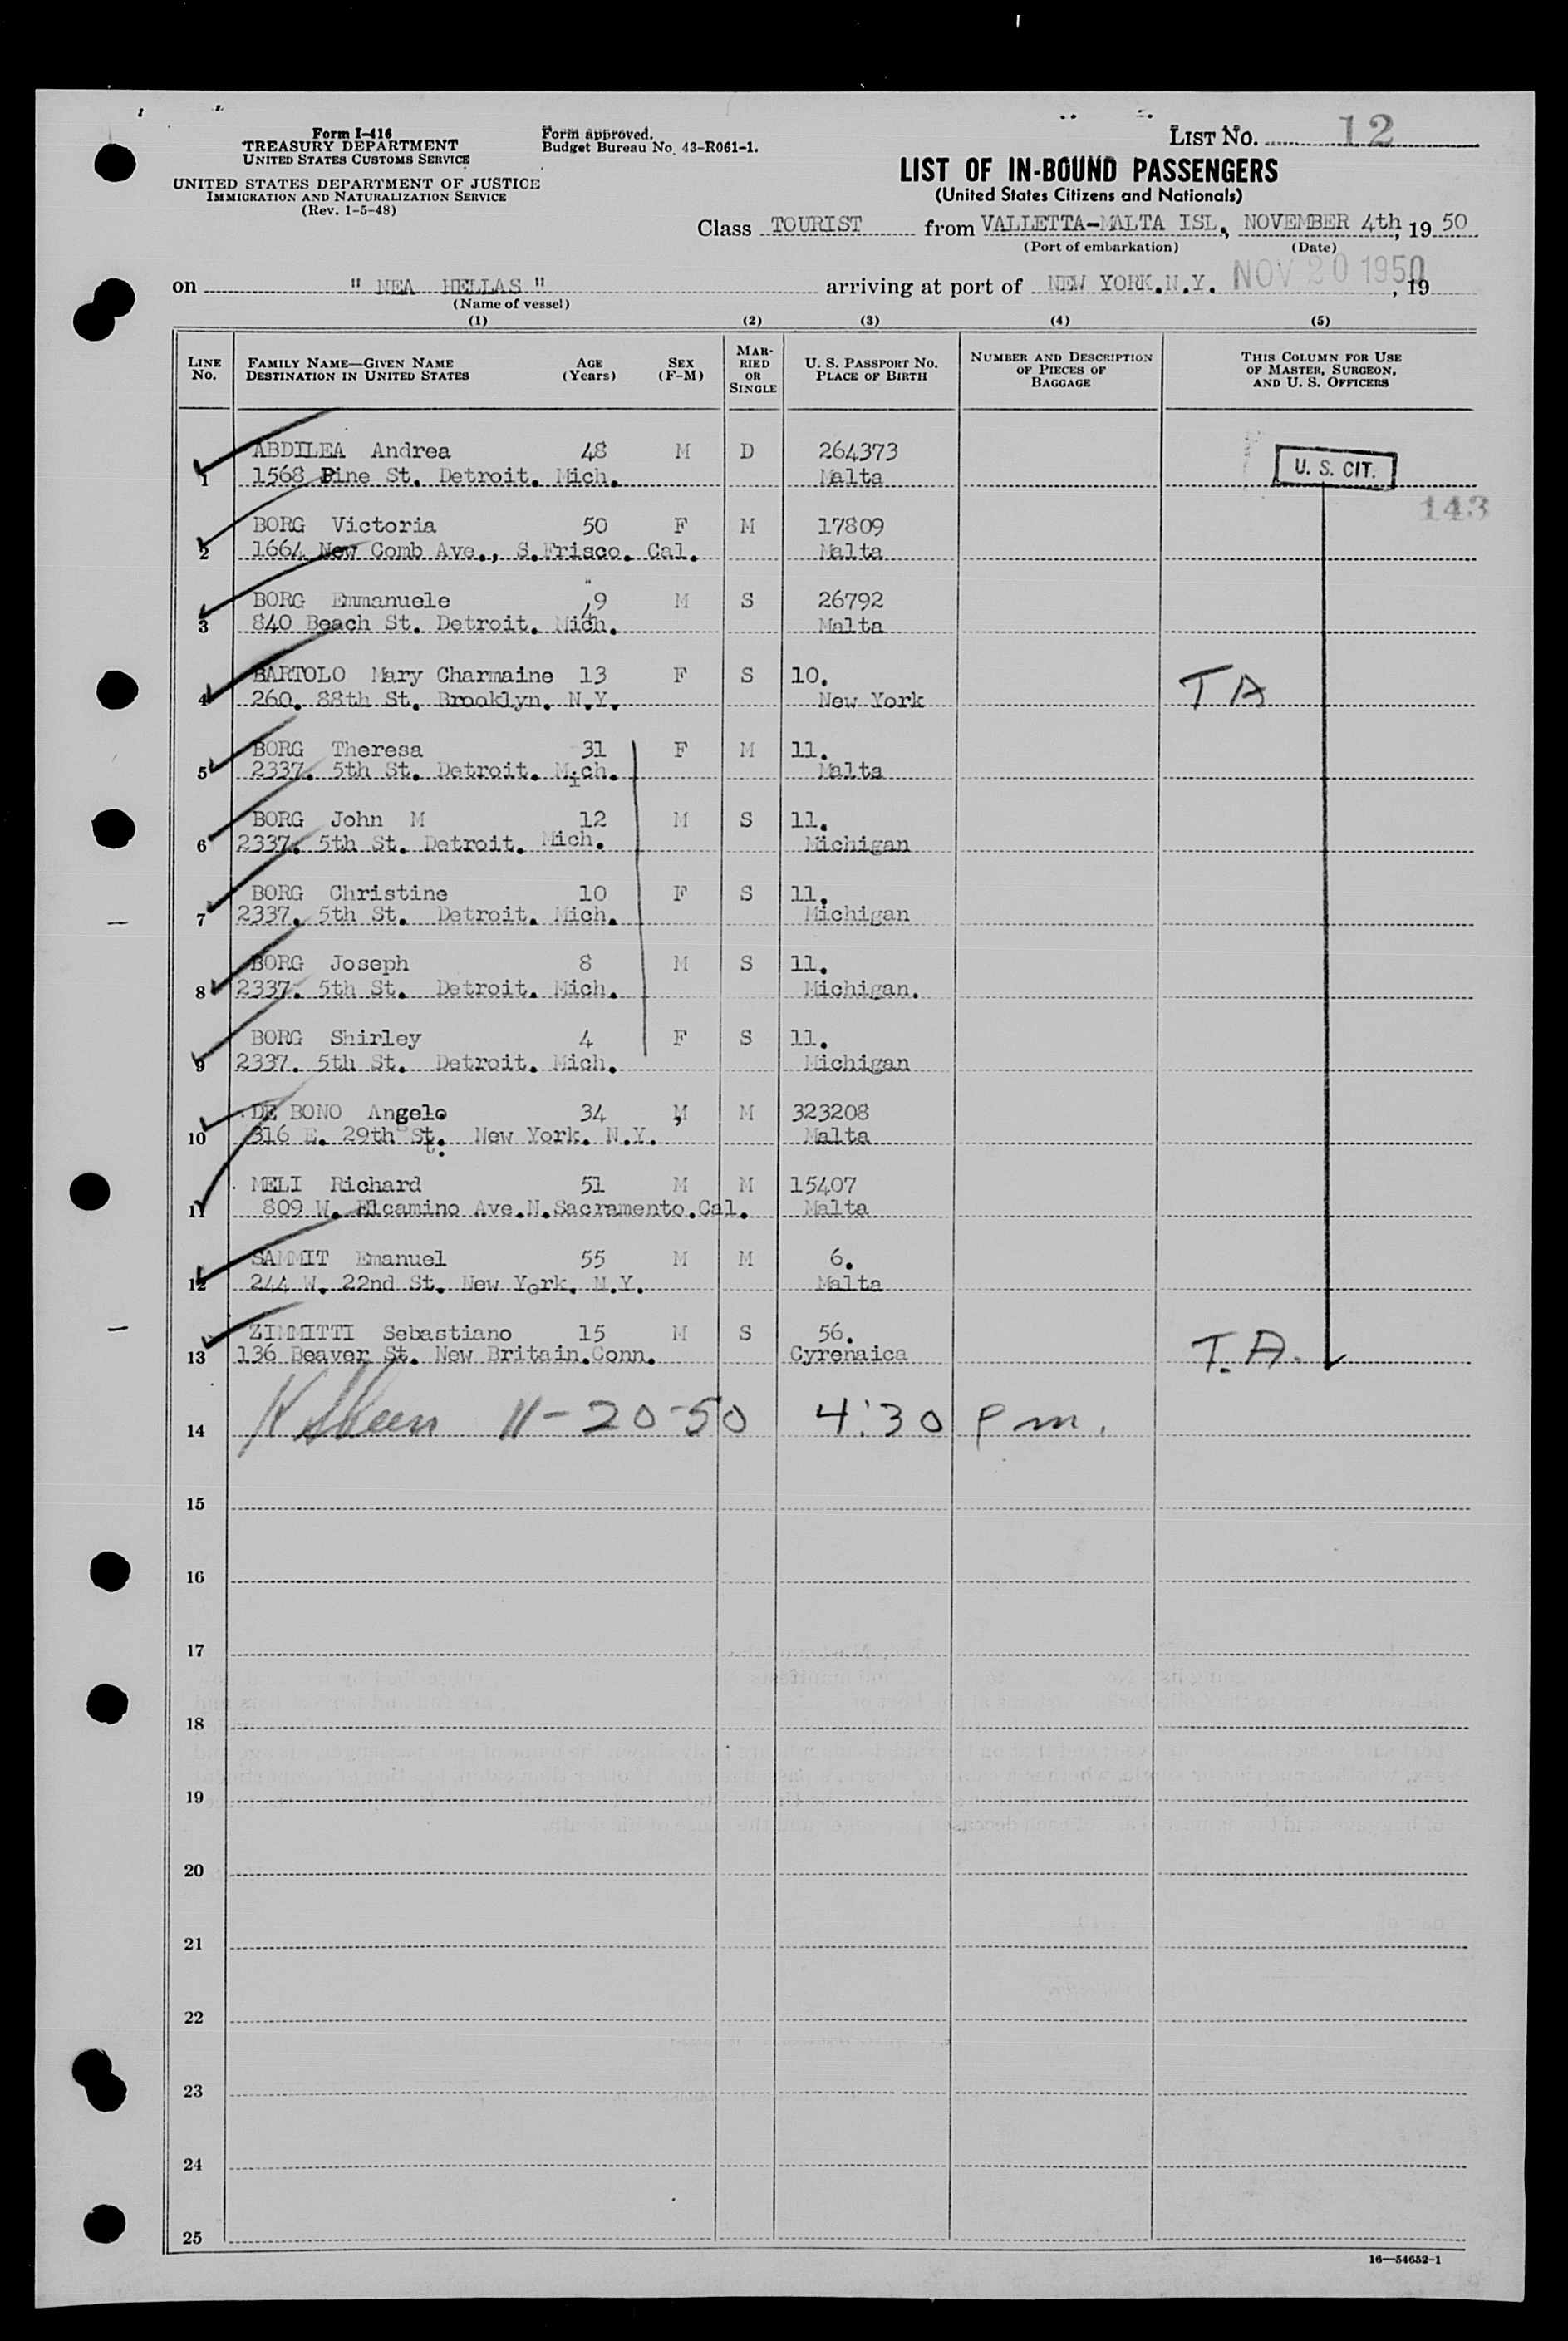 Form I-416
TREASURY DEPARTMENT
UNITED STATES CUSTOMS SERVICE
UNITED STATES DEPARTMENT OF JUSTICE
IMMIGRATION AND NATURALIZATION SERVICE
(Rev. 1-5-48)
Form approved.
Budget Bureau No. 43-R061-1.
LIST NO. 12
LIST OF IN-BOUND PASSENGERS
(United States Citizens and Nationals)
Class TOURIST from VALLETTA-MALTA ISL, NOVEMBER 4th, 19 50
(Port of embarkation) (Date)
on " NEA HELLAS " arriving at port of NEW YORK.N.Y. NOV 20 1950, 19
(Name of vessel)
(1) (2) (3) (4) (5)
LINE NO. FAMILY NAME—GIVEN NAME DESTINATION IN UNITED STATES AGE (Years) SEX (F-M) MARRIED OR SINGLE U. S. PASSPORT NO. PLACE OF BIRTH NUMBER AND DESCRIPTION OF PIECES OF BAGGAGE THIS COLUMN FOR USE OF MASTER, SURGEON, AND U. S. OFFICERS
ABDILEA Andrea 48 M D 264373
1 1568 Pine St. Detroit. Mich. Malta U. S. CIT.
143
BORG Victoria 50 F M 17809
2 1664 New Comb Ave., S.Frisco. Cal. Malta
BORG Emmanuele 49 M S 26792
3 840 Beach St. Detroit. Mich. Malta
BARTOLO Mary Charmaine 13 F S 10.
4 260. 88th St. Brooklyn. N.Y. New York TA
BORG Theresa 31 F M 11.
5 2337. 5th St. Detroit. Mich. Malta
BORG John M 12 M S 11.
6 2337. 5th St. Detroit. Mich. Michigan
BORG Christine 10 F S 11.
7 2337. 5th St. Detroit. Mich. Michigan
BORG Joseph 8 M S 11.
8 2337. 5th St. Detroit. Mich. Michigan.
BORG Shirley 4 F S 11.
9 2337. 5th St. Detroit. Mich. Michigan
DE BONO Angelo 34 M M 323208
10 316 E. 29th St. New York. N.Y. Malta
MELI Richard 51 M M 15407
11 809 W. Elcamino Ave.N.Sacramento.Cal. Malta
SAMMIT Emanuel 55 M M 6.
12 244 W. 22nd St. New York. N.Y. Malta
ZIMMITTI Sebastiano 15 M S 56.
13 136 Beaver St. New Britain.Conn. Cyrenaica T.A.
14 11-20-50 4:30 pm.
15
16
17
18
19
20
21
22
23
24
25
16—54652-1